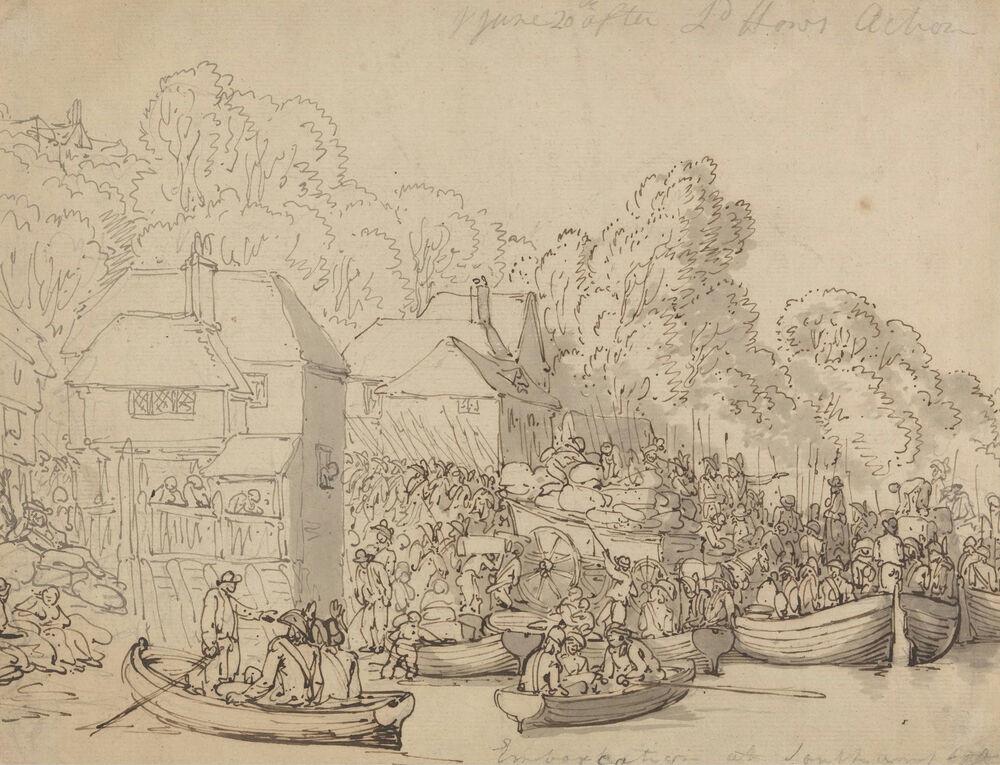 June 20th after Ld Hows Action
Embarkation at Southampton